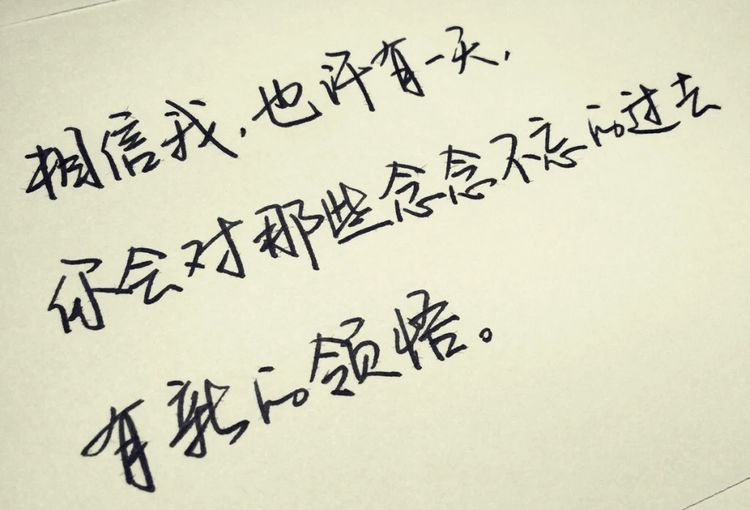 相信我，也许有一天，
你会对那些念念不忘的过去
有新的领悟。